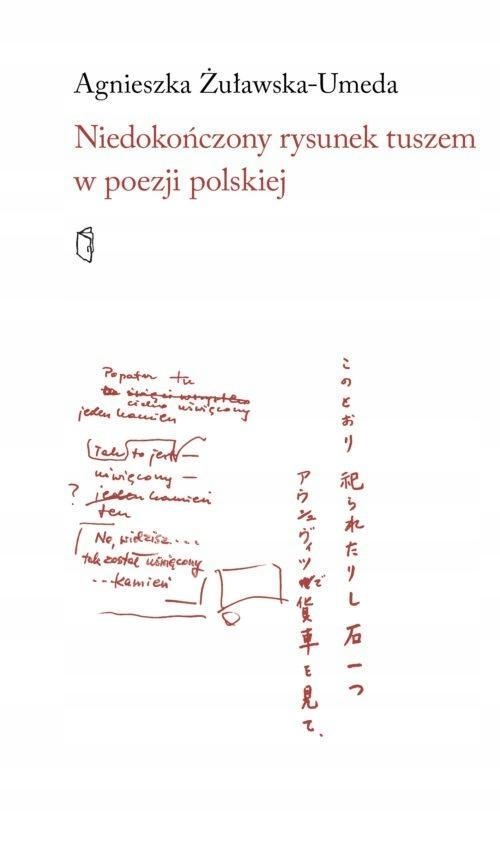 Agnieszka Żuławska-Umeda
Niedokończony rysunek tuszem
w poezji polskiej
Popatrz tu
uświęcony
jeden kamień
(Tak) to jest —
uświęcony —
? jeden kamień
ten
No, widzisz...
tak został uświęcony
...kamień
このとおり 祀られたりし 石一つ
アウシュヴィツで貨車を見て.